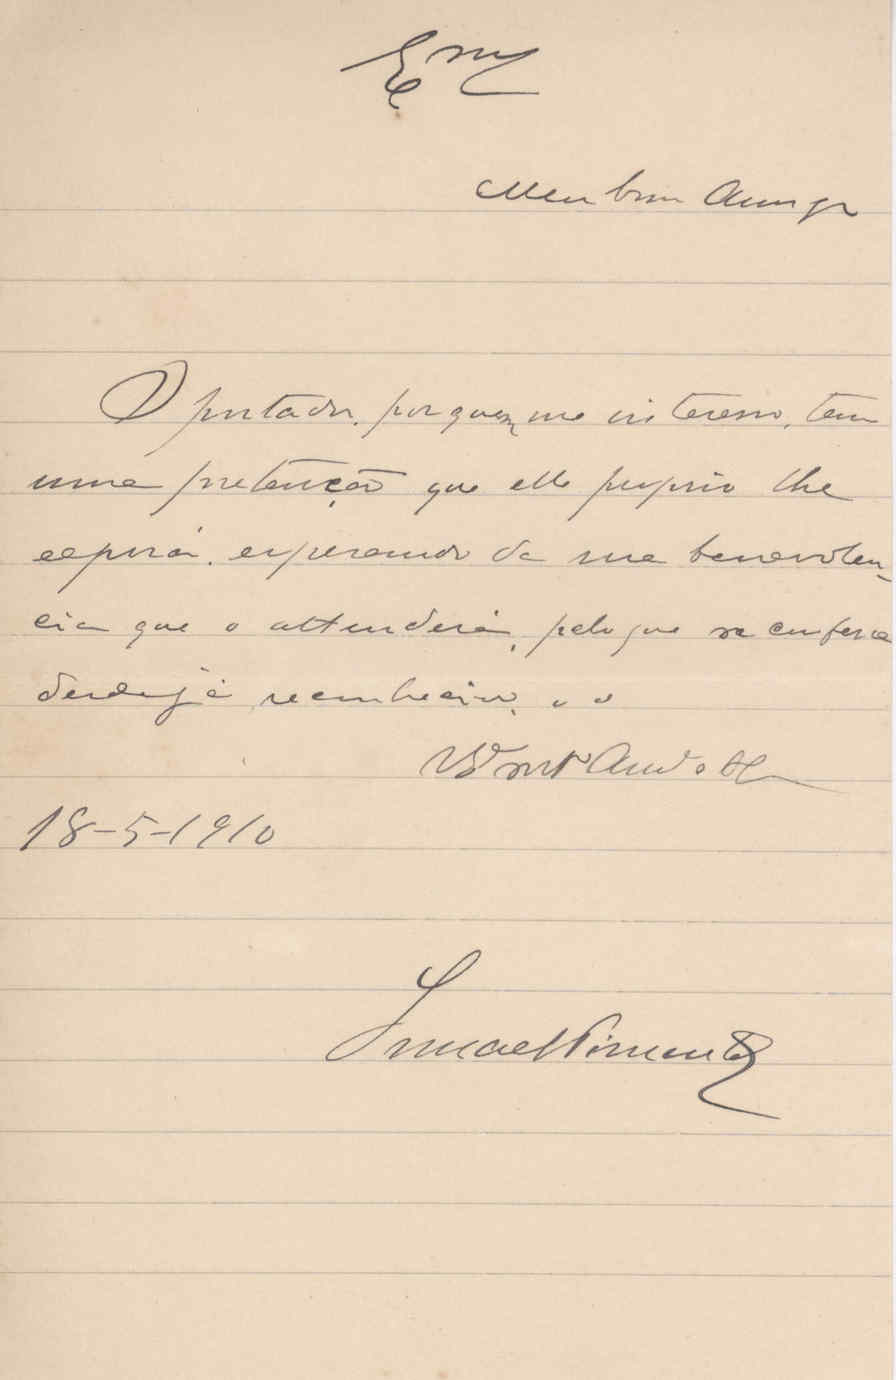 Exmo
Meu bom Amigo
O portador, por quem me interesso, tem
uma pretenção que elle proprio lhe
exporá, esperando da sua benevolen-
cia que o attenderá, pelo que se confessa
desde já reconhecido,
Amo
18-5-1910
Ismael Pimentel